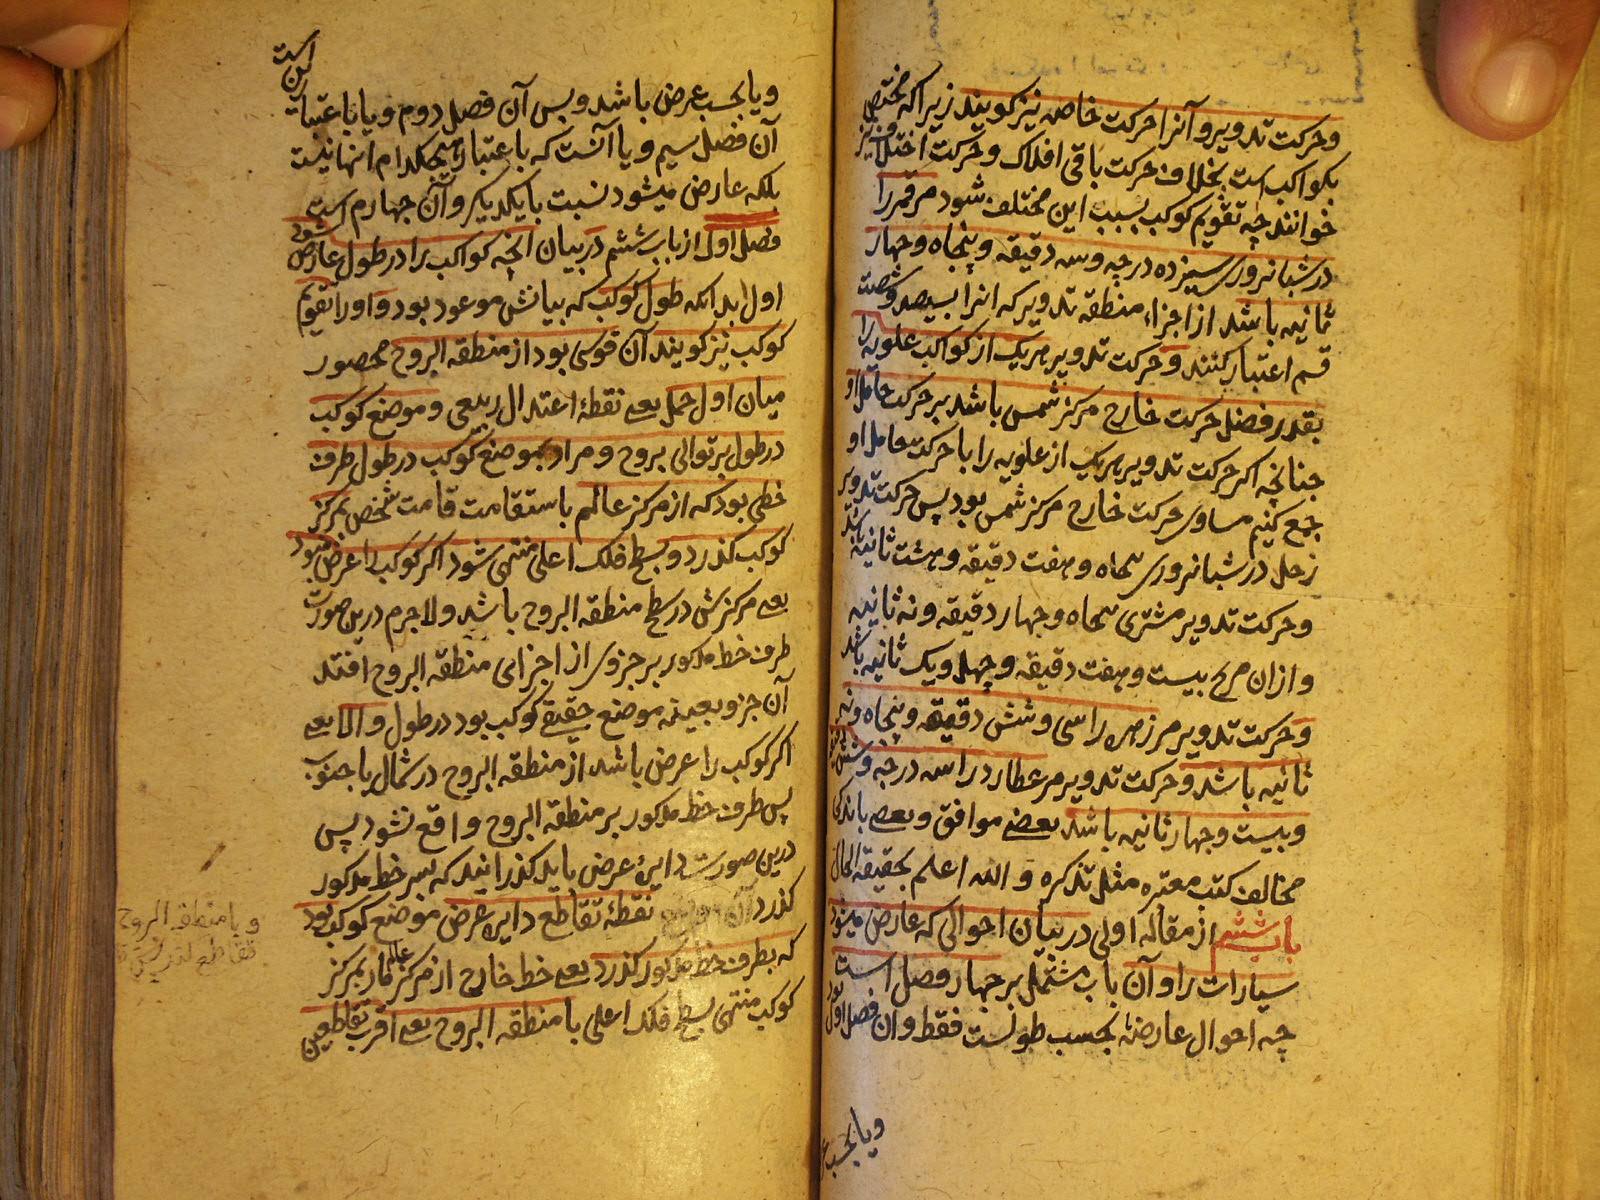 و حرکت تدویر و آنرا حرکت خاص نیز کویند زیرا که مختص
بکواکب است بخلاف حرکت باقی افلاک و حرکت اختلاف نیز
خوانند چه تقویم کوکب بسبب این مختلف شود مر قمر را
در شبانروزی سیزده درجه و سه دقیقه و پنجاه و چهار
ثانیه باشد از اجزاء منطقه تدویر که انرا بسیصد و شصت
قسم اعتبار کنند و حرکت تدویر هریک از کواکب علویه را
بقدر فضل حرکت خارج مرکز شمس باشد بر حرکت حامل او
چنانچه اکر حرکت تدویر هریک از علویه را با حرکت حامل او
جمع کنیم مساوی حرکت خارج مرکز شمس بود پس حرکت تدویر
زحل در شبانروزی پنجاه و هفت دقیقه و هشت ثانیه باشد
و حرکت تدویر مشتری پنجاه و چهار دقیقه و نه ثانیه
و ازان مریخ بیست و هفت دقیقه و چهل و یک ثانیه باشد
و حرکت تدویر مر زهره را سی و شش دقیقه و پنجاه و نه
ثانیه باشد و حرکت تدویر مر عطارد را سه درجه و شش دقیقه
و بیست و چهار ثانیه باشد بعضی موافق و بعضی باندکی
مخالف کتب معتبره مثل تذکره و الله اعلم بحقیقة الحال
باب ششم از مقاله اولی در بیان احوالی که عارض میشود
سیارات را و آن باب مشتمل بر چهار فصل است
چه احوال عارضه بحسب طولست فقط و ان فصل اول بود
و یا بحسب
و یا بحسب عرض باشد و بس آن فصل دوم و یا باعتبار این است
آن فصل سیم و یا آنست که باعتبار هیچکدام اینها نیست
بلکه عارض میشود نسبت بایکدیکر و آن چهارم است
فصل اول از باب ششم در بیان انچه کواکب را در طول عارض شود
اول بدانکه طول کوکب که بیانش موعود بود و او را تقویم
کوکب نیز کویند آن قوسی بود از منطقه البروج محصور
میان اول حمل یعنی نقطهٔ اعتدال ربیعی و موضع کوکب
در طول بر توالی بروج و مراد بموضع کوکب در طول طرف
خطی بود که از مرکز عالم باستقامت قامت شخص بمرکز
کوکب کذرد و بسطح فلک اعلی منتهی شود اکر کوکب را عرض نبود
یعنی مرکزش در سطح منطقه البروج باشد و لاجرم درین صورت
طرف خط مذکور بر جزوی از اجزای منطقه البروج افتد
آن جزو بعینه موضع حقیقی کوکب بود در طول و الا یعنی
اکر کوکب را عرض باشد از منطقه البروج در شمال یا جنوب
پس طرف خط مذکور بر منطقه البروج واقع نشود پس
درین صورت دایرهٔ عرض باید کذرانید که بسر خط مذکور
کذرد نقطهٔ تقاطع دایره عرض موضع کوکب بود
که بطرف خط مذکور کذرد یعنی خط خارج از مرکز عالم مار بمرکز
کوکب منتهی بسطح فلک اعلی با منطقه البروج یعنی اقرب تقاطعین
و یا منطقه البروج